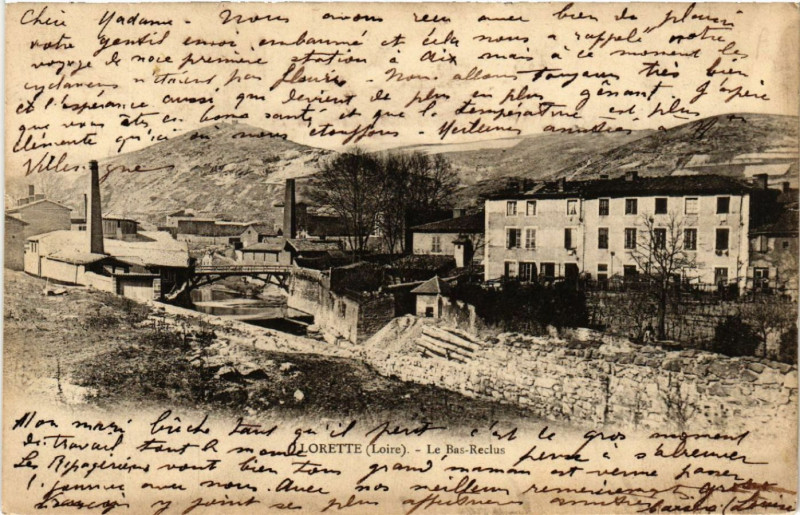 Chère Madame - Nous avons reçu avec bien du plaisir
votre gentil envoi embaumé et cela nous a rappelé notre
voyage de noce première station à Aix mais à ce moment les
cyclamens n'étaient pas fleuris - Nous allons toujours très bien
et l'espérance aussi qui devient de plus en plus gênant. J'espère
que vous êtes en bonne santé et que la température est plus
clémente qu'ici où nous étouffons - Meilleures amitiés à
LORETTE (Loire). - Le Bas-Reclus
Mon mari bûche tant qu'il peut c'est le gros moment
de travail tout le monde pense à s'abreuver
Les vont bien tous grand maman est venue passer
avec nous. Avec nos meilleurs remerciements
François y joint ses plus affectueuses amitiés